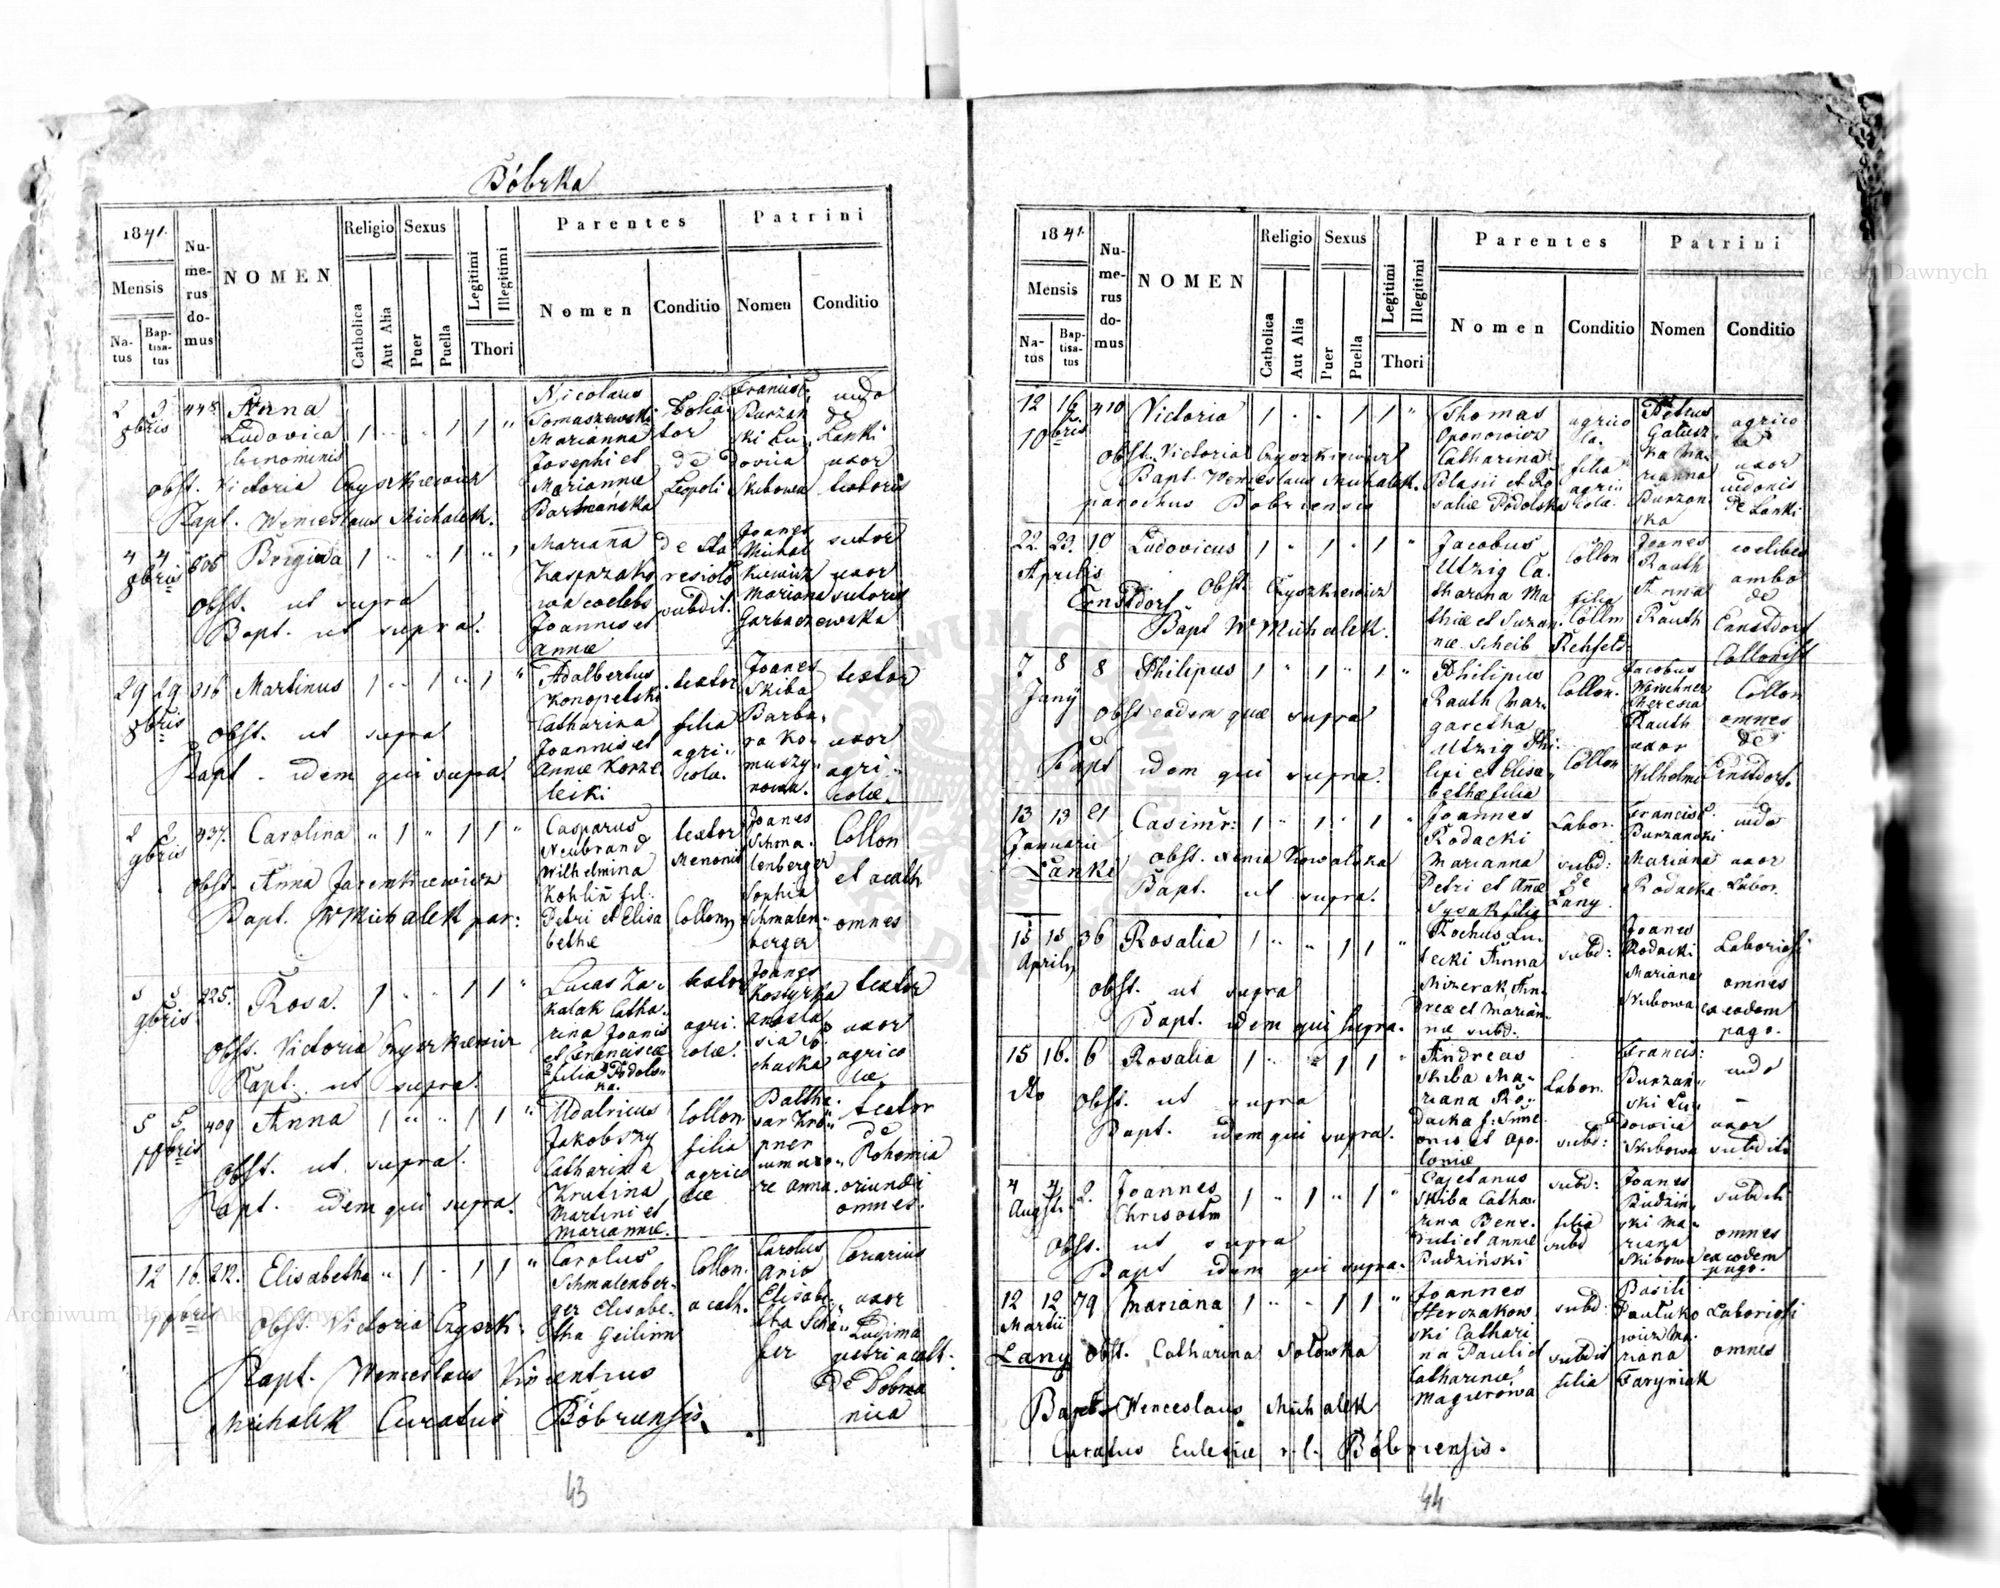 Bóbrka
1841.
Mensis
Na-
tus
Bap-
tisa-
tus
Nu-
me-
rus
do-
mus
NOMEN
Religio
Catholica
Aut Alia
Sexus
Puer
Puella
Legitimi
Illegitimi
Thori
Parentes
Nomen
Conditio
Patrini
Nomen
Conditio
2 3 448 Anna
8bris Ludovica
binominis
obst. Victoria Czyszkiewicz
Bapt. Wenceslaus Michalek.
Nicolaus
Tomaszewski
Marianna
Josephi et
Mariannæ
de
Leopoli
Burzań
ski Lu
dovica
Skibowa
de
Lanki
uxor
textoris
4 4 Brigida
8bris
Obst. ut supra
Bapt. ut supra.
Mariana
Joannis et
Annæ
subdit.
Joanes
Michal
kiewicz
Mariana
Garbaczewska
sutor
uxor
sutoris
29 29 316 Martinus
8bris
Obst. ut supra
Bapt. idem qui supra
Adalbertus
Konopelski
Catharina
Joannis et
Annæ Korze
lecki
textor
filia
agri-
cola.
Joanes
Skiba
Barba-
ra Ko-
muszy-
nowa.
textor
uxor
agri-
colæ.
2 2 437. Carolina
9bris
Obst. Anna Jaremkiewicz
Bapt. W Michalek par:
Casparus
Neubrand
Wilhelmina
Kohlin fil:
Petri et Elisa
bethæ
textor
Menonit
Collon
Joanes
Schma-
lenberger
Sophia
Schmalen-
berger
Collon
et acath
omnes
5 5 225. Rosa.
9bris
Obst. Victoria Czyszkiewicz
Bapt. ut supra.
Lucas Za-
kalak Catha-
rina Joanis
et Franciscæ
filia Podols-
ka.
textor
agri-
colæ.
Joanes
Kostyrka
uxor
agrico
læ
textor
5 5 409 Anna
10bris
Obst. ut supra.
Bapt. idem qui supra.
Udalricus
Jakobszy
Catharina
Krutina
Martini et
Mariannæ.
Collon
filia
agrico
læ
Baltha-
sar Krö-
pner
cum uxo-
re Anna.
textor
de
Bohemia
oriundi
omnes.
12 16. 212. Elisabetha
10bris
Obst. Victoria Czyszk:
Bapt. Wenceslaus Vincentius
Michalek Curatus Bóbrcensis.
Carolus
Schmalenber-
ger Elisabe-
tha Geilinn
Collon.
acath.
Carolus
Elisabe-
tha Schä-
fer
uxor
acath.
de Dobrza
nica
43
1841.
Mensis
Na-
tus
Bap-
tisa-
tus
Nu-
me-
rus
do-
mus
NOMEN
Religio
Catholica
Aut Alia
Sexus
Puer
Puella
Legitimi
Illegitimi
Thori
Parentes
Nomen
Conditio
Patrini
Nomen
Conditio
12 16 410 Victoria
10bris
Obst. Victoria Czyszkiewicz
Bapt. Wenceslaus Michalek.
parochus Bobrcensis
Thomas
Oponowicz
Catharina
Blasii et Ro
saliæ Podolska
agrico
la.
filia
agri
cola.
Petrus
Galusz
ka Ma-
rianna
Burzan-
ska
agrico
la
uxor
de Lanki
22 23. 10 Ludovicus
Aprilis
Ernstdorf Obst. Czyszkiewicz
Bapt W Michalek.
Jacobus
Utzig Ca-
tharina Ma
thiæ et Suzan-
næ Scheib
Collon
filia
Collon
Rehfeld
Joanes
Rauth
Anna
Rauth
coelibes
ambo
de
Ernstdorf
Collonist
7 8 8 Philipus
Juny
Obst eadem quæ supra
Bapt idem qui supra.
Philipus
Rauth Mar-
garetha
Utzig Phi-
lipi et Elisa-
bethæ filia
Collon.
Collon
Jacobus
Theresia
Rauth
uxor
Wilhelmi
Collon
omnes
de
Ernstdorf.
13 13 21 Casimir:
Januarii
Lanki Obst. Xenia Kowalska
Bapt. ut supra.
Joannes
Rodacki
Marianna
Petri et Annæ
Sysak filia
Labor.
subd:
de
Lany
Francisc.
Burzanski
Mariana
Rodacka
uxor
Labor.
15 15 36 Rosalia
Aprilis
Obst. ut supra
Bapt. idem qui supra.
Rochus Lu-
tecki Anna
Mizerak, An-
dreæ et Marian-
næ subd.
subd:
Joanes
Rodacki
Mariana
Skibowa
Laboriosi
omnes
ex eodem
pago.
15 16. 6 Rosalia
dto
Obst. ut supra
Bapt. idem qui supra.
Andreas
Skiba Ma-
riana Ro-
dacka f: Sime
onis et Apo-
loniæ
Labor.
subd:
Francis:
Burzań-
ski Lu-
dovica
Skibowa
uxor
subditi
4 4 2. Joannes
Augsti. Chrisostm
Obst. ut supra
Bapt idem qui supra.
Cajetanus
Skiba Catha-
rina Bene-
dicti et Annæ
Pudziński
subd:
filia
subd
Joanes
Pudziń-
ski Ma-
riana
Skibowa
subditi
omnes
ex eodem
pago.
12 12 79 Mariana
Martii
Lany Obst. Catharina Sołowka
Bapt Wenceslaus Michalek
Curatus Eclesiæ r. l. Bóbrcensis.
Joannes
Herczakow
ski Cathari
na Pauli et
Catharinæ
Magierowa
subd:
subdit
filia
Basili
Pautuko
wicz Ma-
riana
Faryniak
Laboriosi
omnes
44
Archiwum Główne Akt Dawnych
Archiwum Główne Akt Dawnych